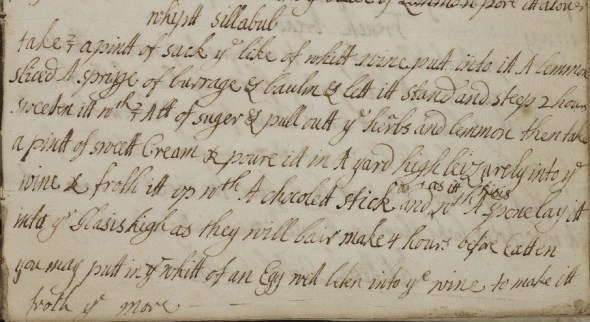 whiptt sillabub
take ¾ a pintt of sack yͤ like of whitt wine putt into itt A lemmon
sliced A sprigge of burrage & baulm & lett itt stand and steep 2 hours
sweeten itt wᵗʰ ¾ A tt of suger & pull outt yͤ hirbs and lemmon then take
a pintt of sweett Cream & poure itt in A yard high leizurely into yͤ
wine & froth itt up wᵗʰ A chocolett stick and as itt rises wᵗʰ A spone lay itt
into yͤ Glasis high as they will bair make 4 hours before Eatten
you may putt in yͤ whitt of an Egg well beten into yͤ wine to make itt
froth yͤ more